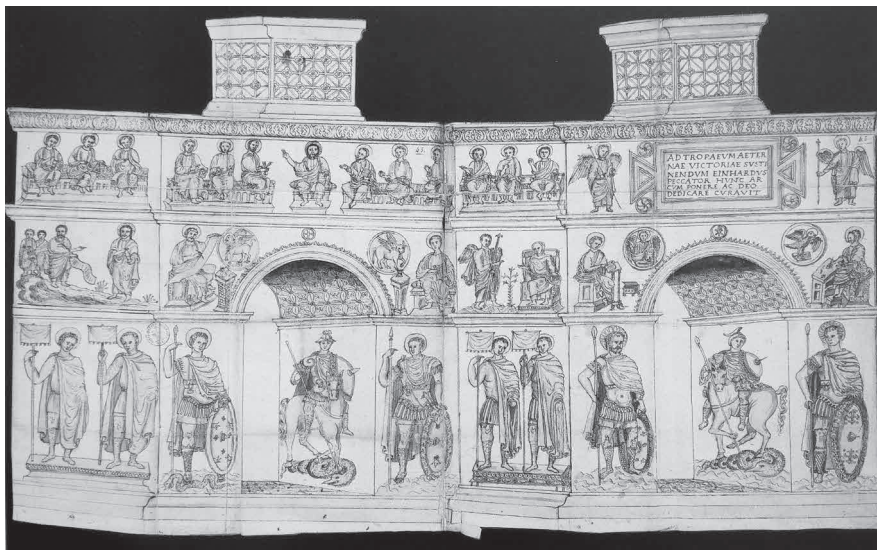 AD TROPAEUM AETER
NAE VICTORIAE SUSTI
NENDUM EINHARDUS
PECCATOR HUNC AR
CUM PONERE AC DEO
DEDICARE CURAVIT